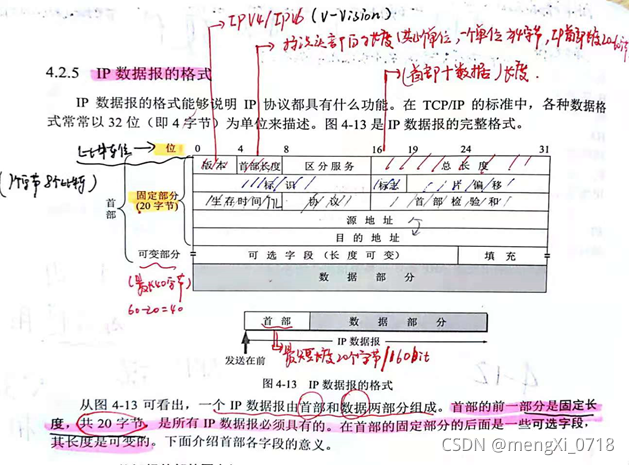 IPV4/IPV6 (V-Vision)
(首部+数据)长度.
4.2.5 IP 数据报的格式
IP 数据报的格式能够说明 IP 协议都具有什么功能。在 TCP/IP 的标准中，各种数据格
式常常以 32 位（即 4 字节）为单位来描述。图 4-13 是 IP 数据报的完整格式。
位 0 4 8 16 19 24 31
版本 首部长度 区分服务 总长度
标识 标志 片偏移
生存时间 协议 首部检验和
源地址
目的地址
可选字段（长度可变） 填充
数据部分
(1个字节8个比特)
首部
固定部分
(20 字节)
可变部分
60-20=40
首部 数据部分
IP 数据报
发送在前
最短长度20个字节/160bit
图 4-13 IP 数据报的格式
从图 4-13 可看出，一个 IP 数据报由首部和数据两部分组成。首部的前一部分是固定长
度，共 20 字节，是所有 IP 数据报必须具有的。在首部的固定部分的后面是一些可选字段，
其长度是可变的。下面介绍首部各字段的意义。
CSDN @mengXi_0718